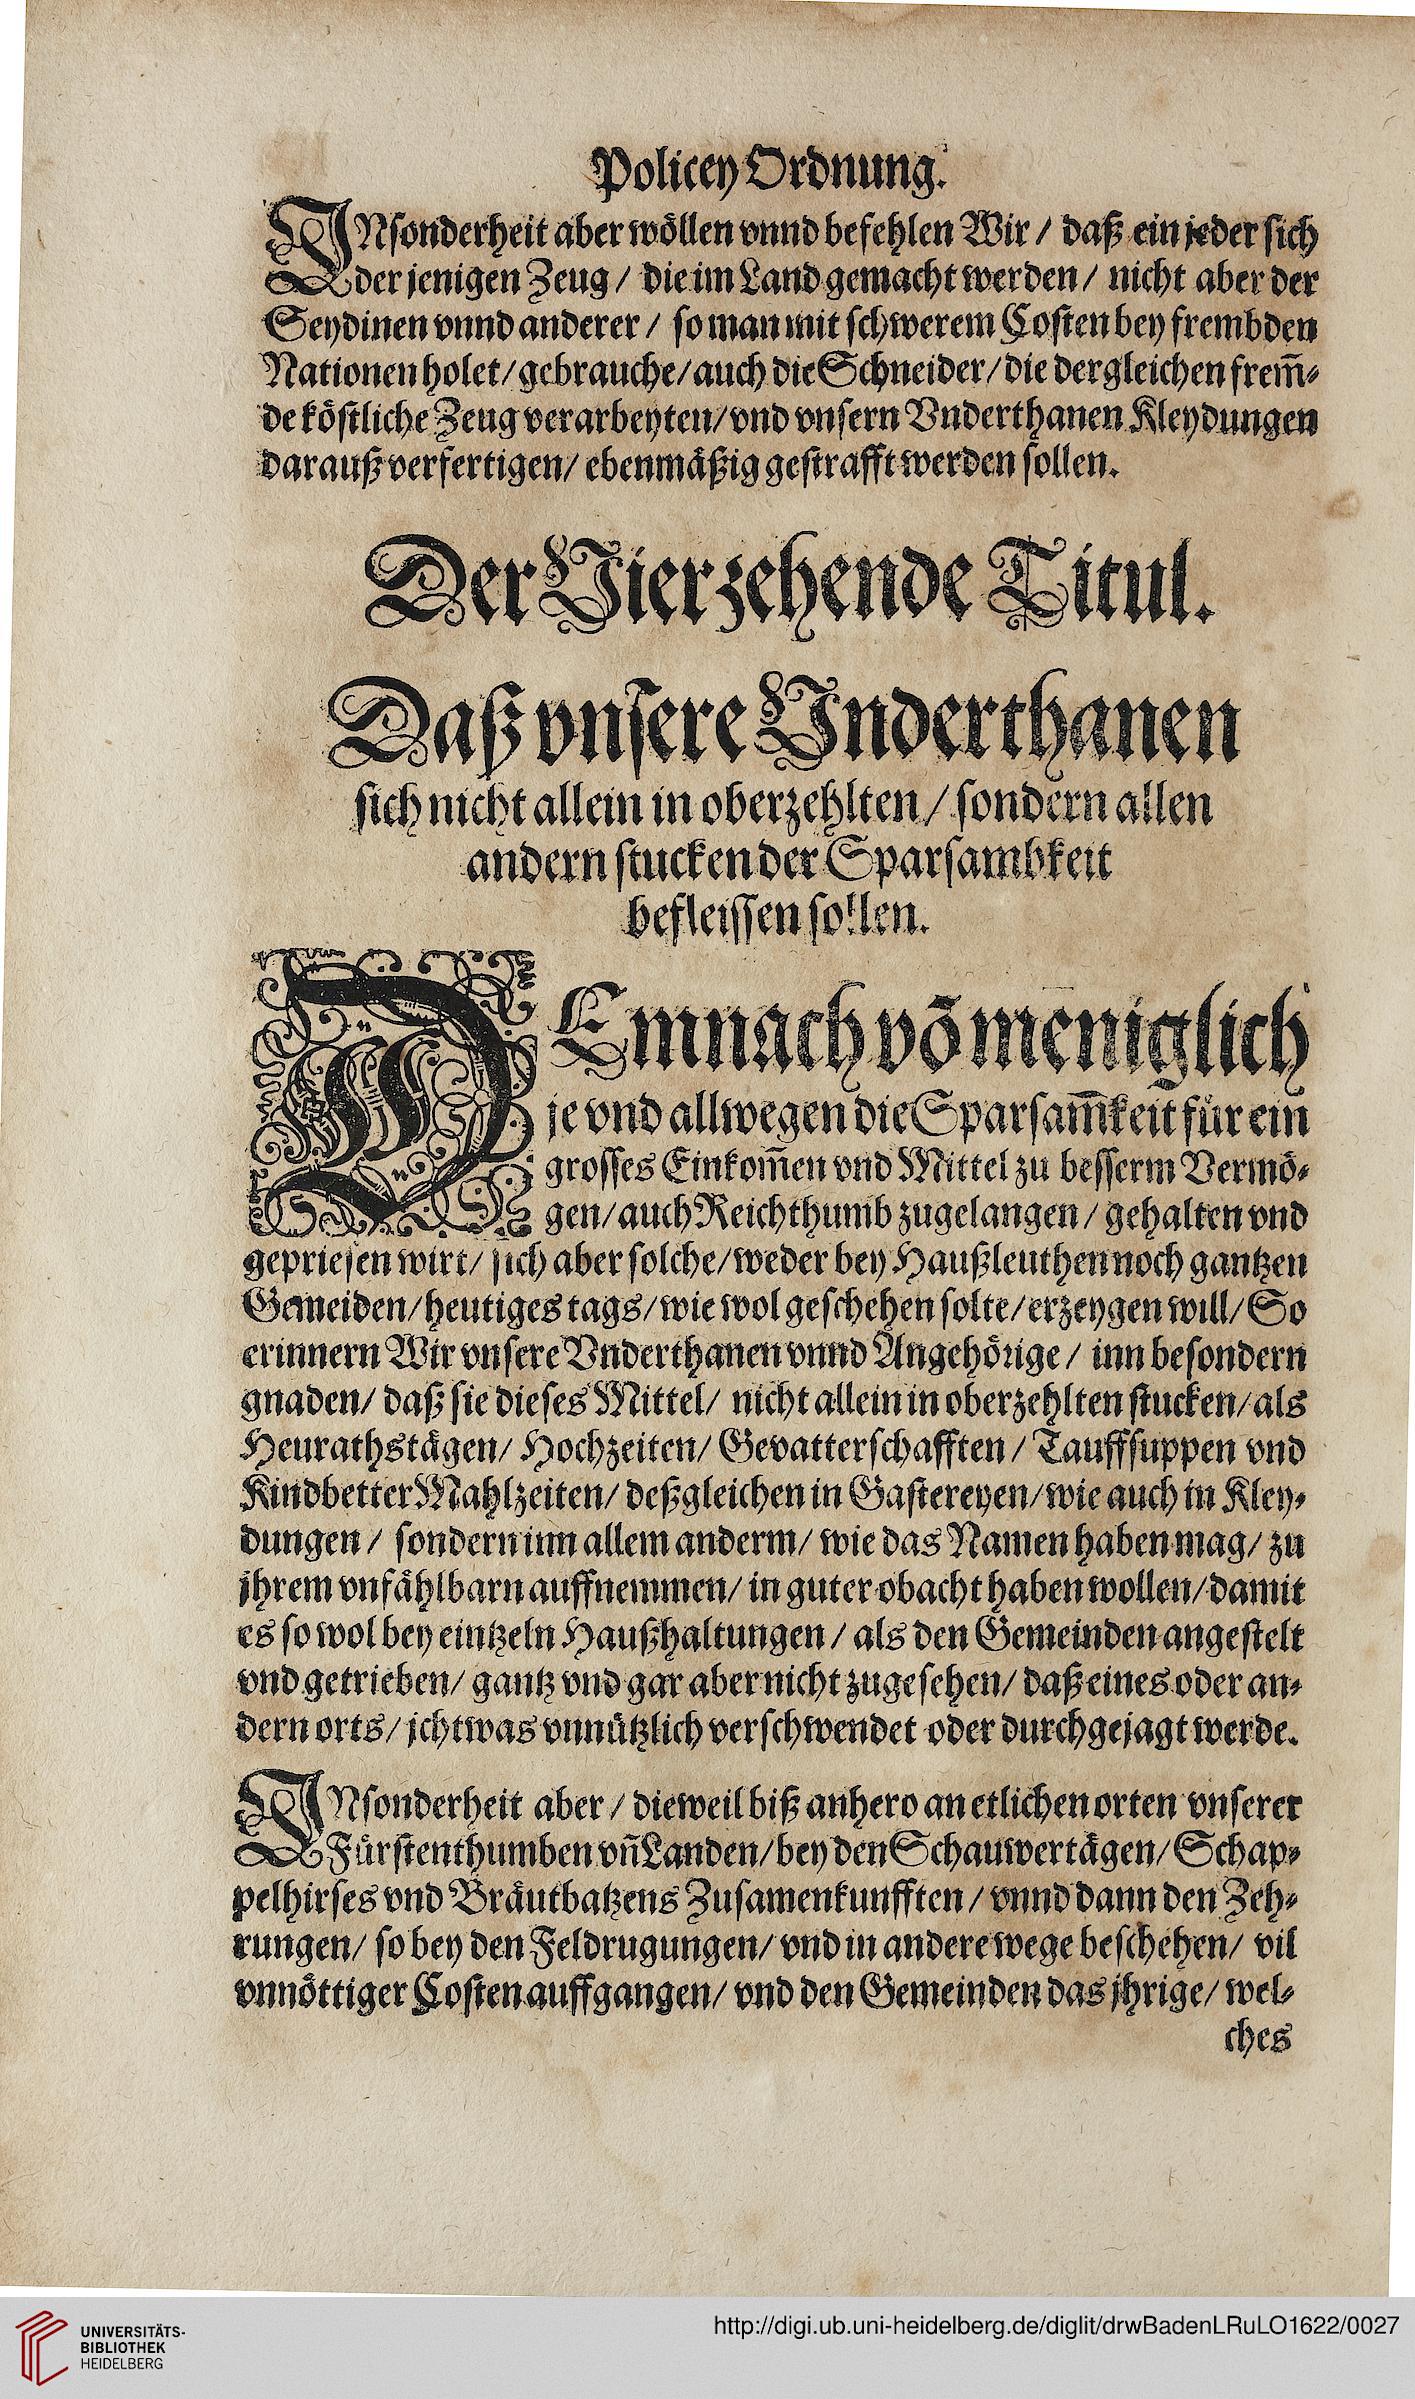 Policey Ordnung.
INsonderheit aber wöllen vnnd befehlen Wir / daß ein jeder sich
der jenigen Zeug / die im Land gemacht werden / nicht aber der
Seydinen vnnd anderer / so man mit schwerem Costen bey frembden
Nationen holet / gebrauche / auch die Schneider / die dergleichen frem̄⸗
de köstliche Zeug verarbeyten / vnd vnsern Vnderthanen Kleydungen
darauß verfertigen / ebenmäßig gestrafft werden sollen.
Der Vierzehende Titul.
Daß vnsere Vnderthanen
sich nicht allein in oberzehlten / sondern allen
andern stucken der Sparsambkeit
befleissen sollen.
DEmnach vō meniglich
je vnd allwegen die Sparsam̄keit für ein
grosses Einkom̄en vnd Mittel zu besserm Vermö⸗
gen / auch Reichthumb zugelangen / gehalten vnd
gepriesen wirt / sich aber solche / weder bey Haußleuthen noch gantzen
Gemeiden / heutiges tags / wie wol geschehen solte / erzeygen will / So
erinnern Wir vnsere Vnderthanen vnnd Angehörige / inn besondern
gnaden / daß sie dieses Mittel / nicht allein in oberzehlten stucken / als
Heurathstägen / Hochzeiten / Gevatterschafften / Tauffsuppen vnd
KindbetterMahlzeiten / deßgleichen in Gastereyen / wie auch in Kley⸗
dungen / sondern inn allem anderm / wie das Namen haben mag / zu
jhrem vnfählbarn auffnemmen / in guter obacht haben wollen / damit
es so wol bey eintzeln Haußhaltungen / als den Gemeinden angestelt
vnd getrieben / gantz vnd gar aber nicht zugesehen / daß eines oder an⸗
dern orts / jchtwas vnnützlich verschwendet oder durchgejagt werde.
INsonderheit aber / dieweil biß anhero an etlichen orten vnserer
Fürstenthumben vn̄ Landen / bey den Schauwertägen / Schap⸗
pelhirses vnd Bräutbatzens Zusamenkunfften / vnnd dann den Zeh⸗
rungen / so bey den Feldrugungen / vnd in andere wege beschehen / vil
vnnöttiger Costen auffgangen / vnd den Gemeinden das jhrige / wel⸗
ches
UNIVERSITÄTS-
BIBLIOTHEK
HEIDELBERG
http://digi.ub.uni-heidelberg.de/diglit/drwBadenLRuLO1622/0027